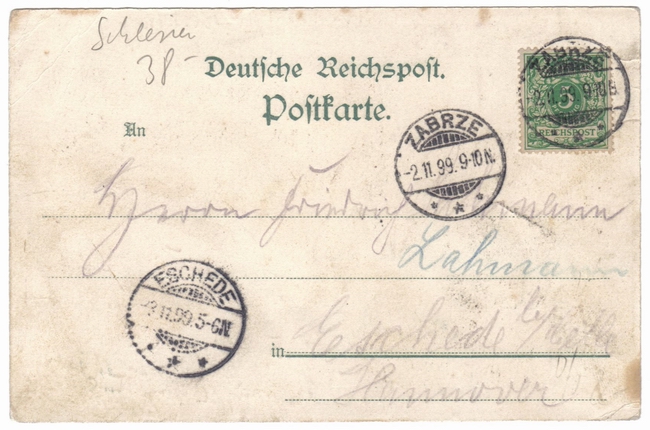 Schlesien
38-
Deutsche Reichspost.
Postkarte.
An
ZABRZE
2.11.99. 9-10 N.
5
REICHSPOST
ZABRZE
-2.11.99. 9-10 N.
Herrn Friedrich
Lahmann
ESCHEDE
-3.11.99. 5-6 N.
in Eschede
Hannover